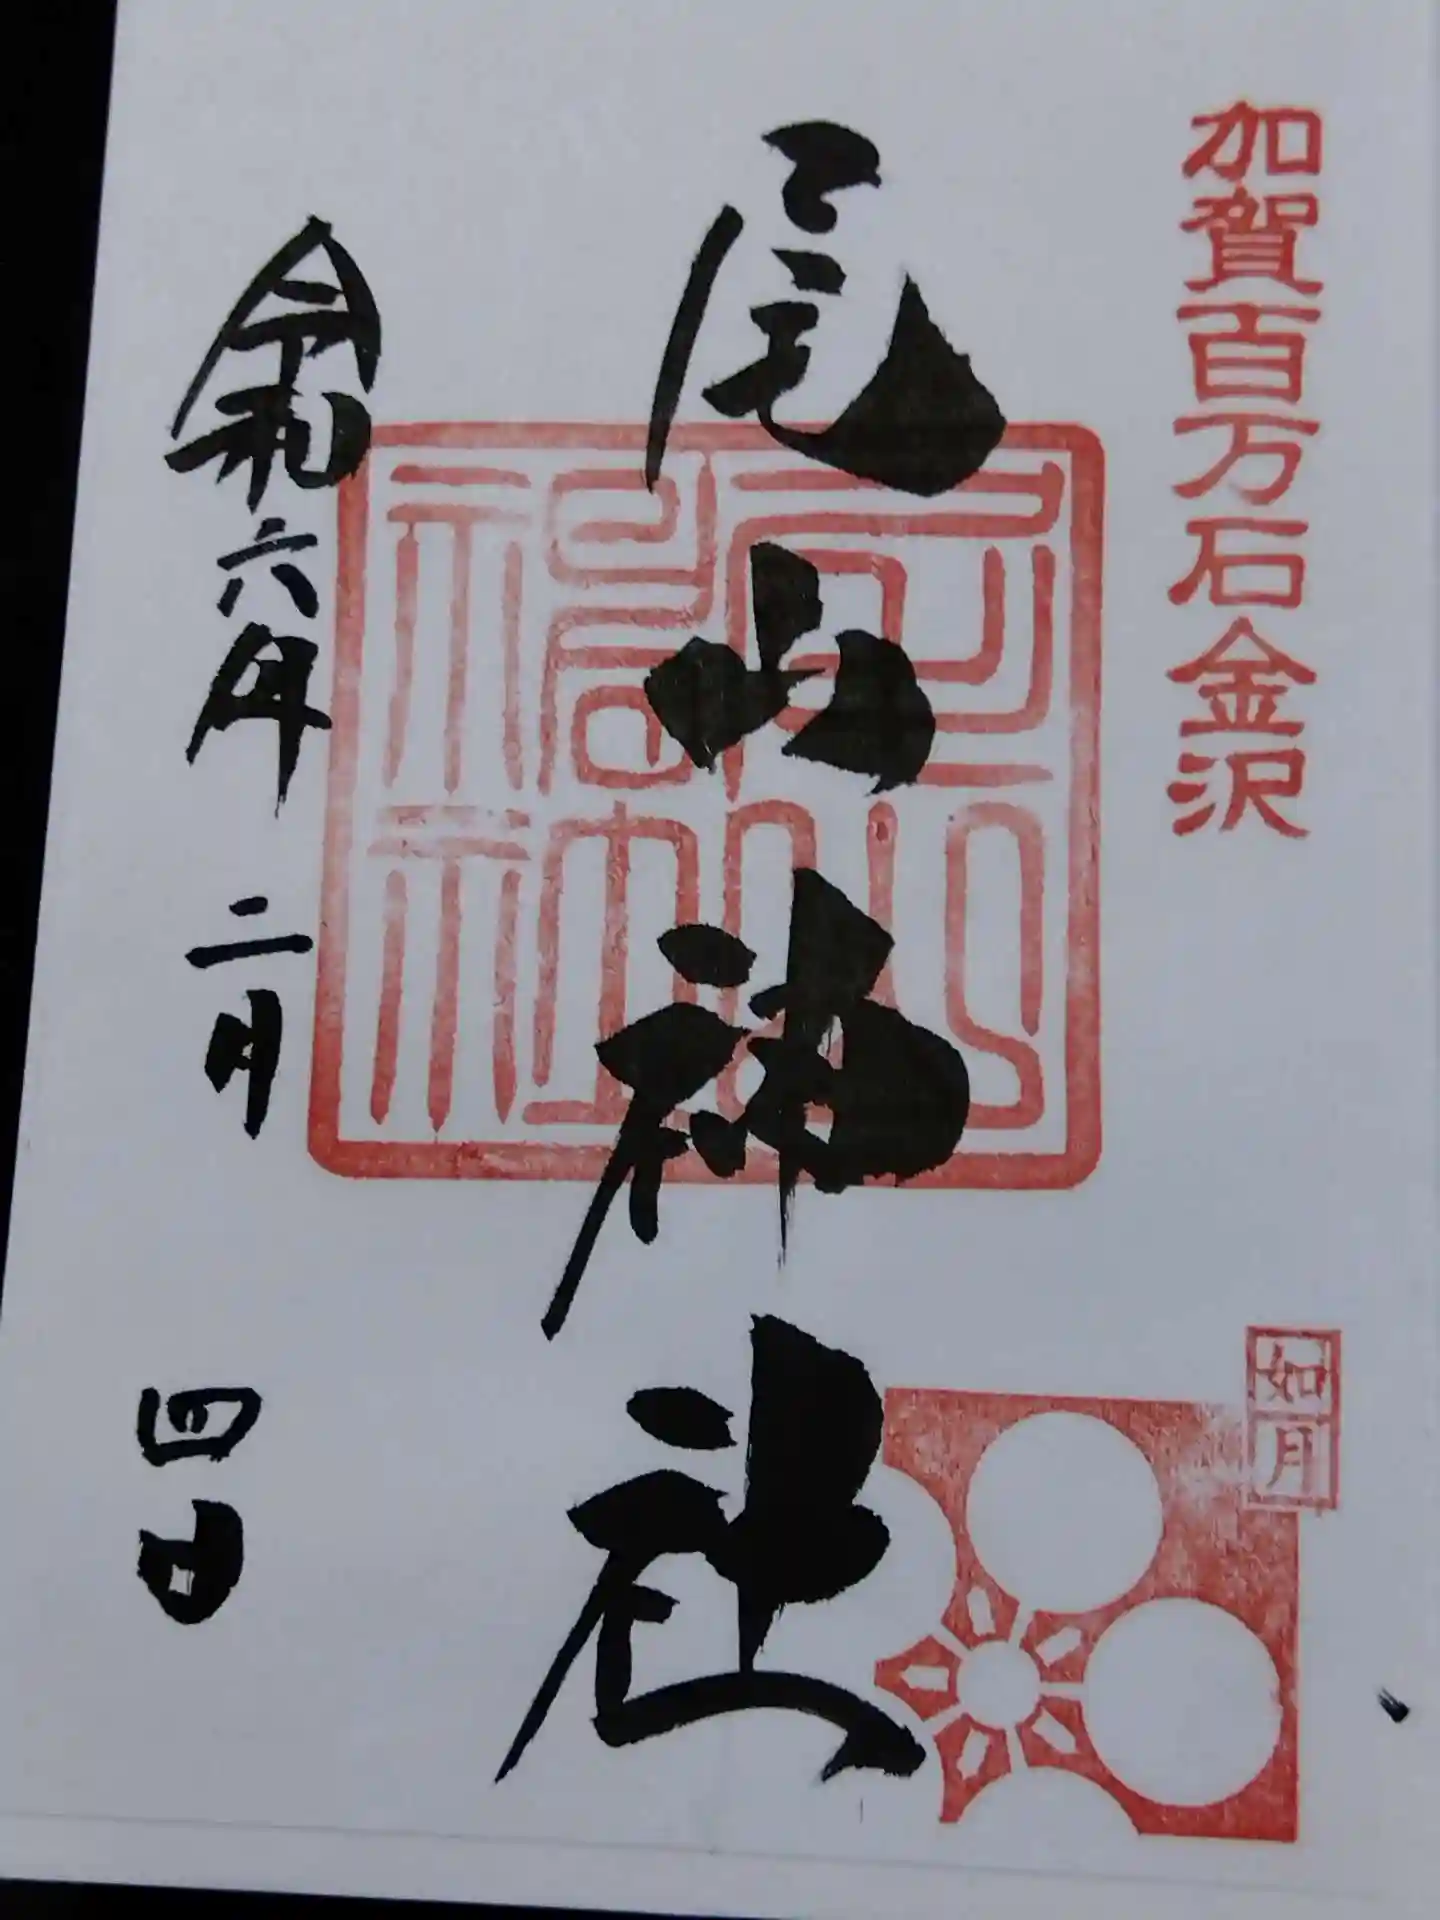 加賀百万石金沢
如月
尾山神社
尾山神社
令和六年 二月 四日